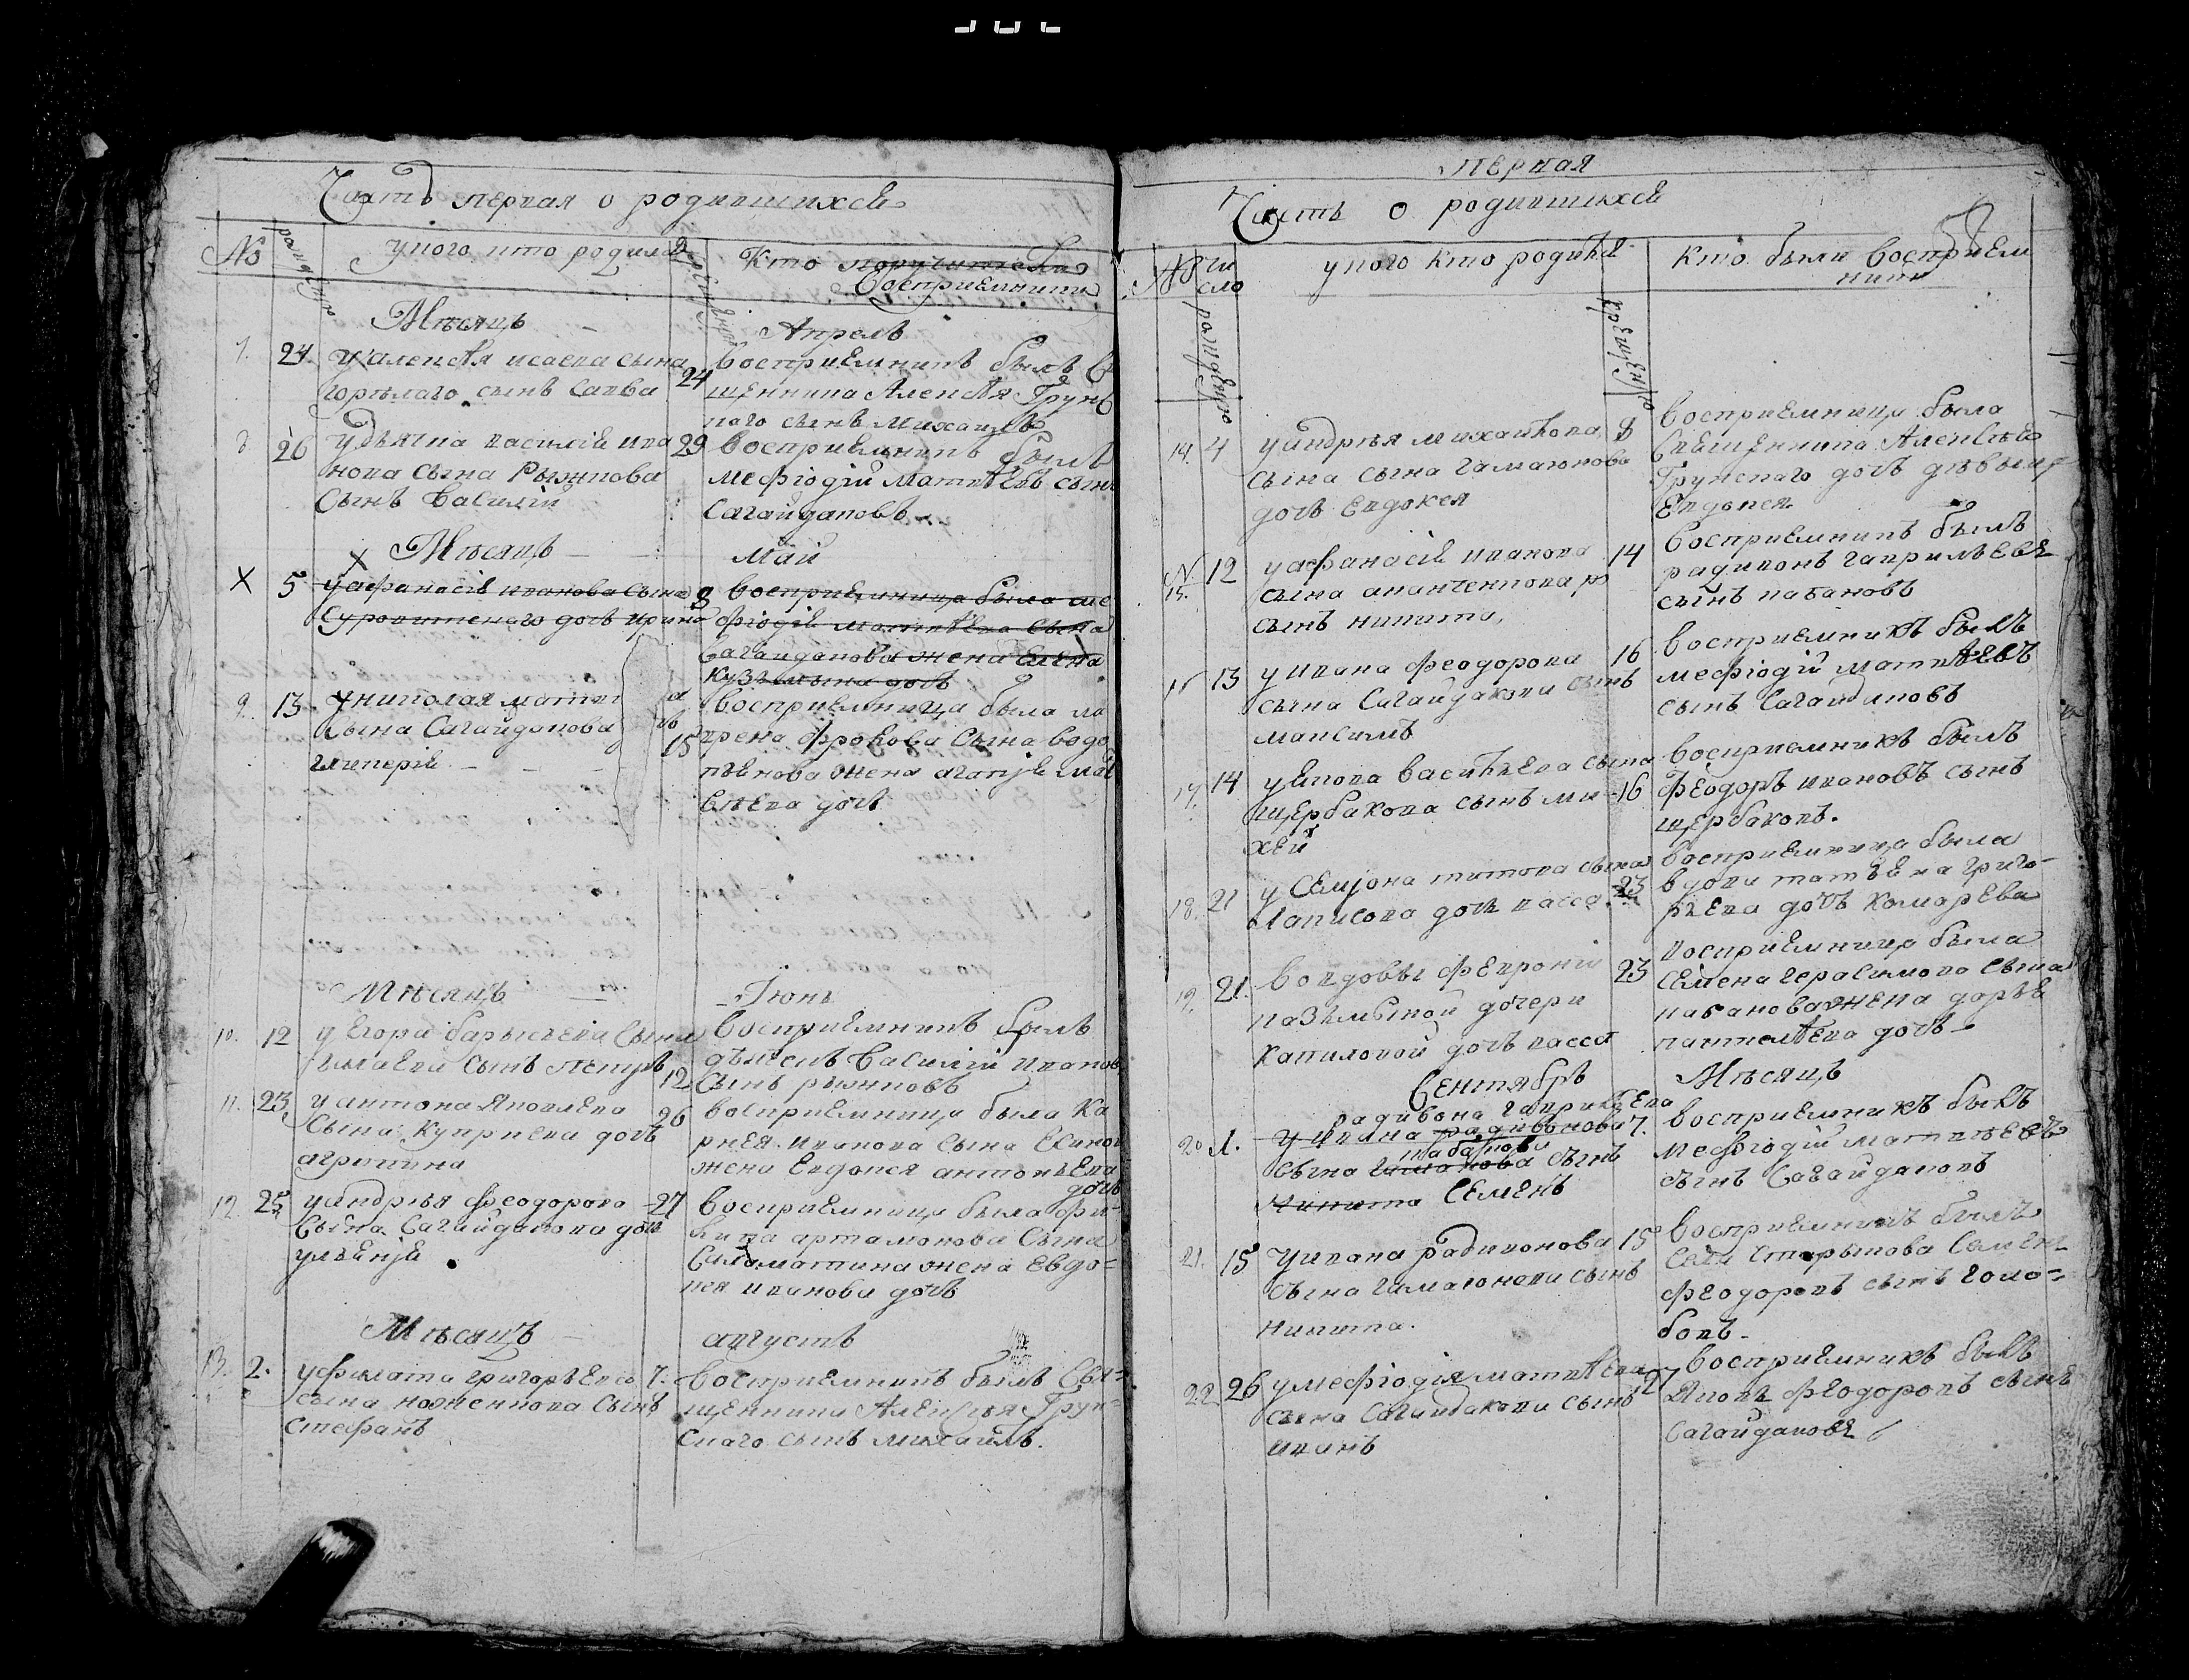 Часть первая о родившихся
№
рождению
у кого кто родился
крещению
Кто поручители
Восприемники
Мѣсяцъ
Апрель
7. 24. у алексѣя исаева сына
горѣлаго сынъ савва
24
восприемникъ былъ свя
щенника Алексѣя Грунс
каго сынъ михаилъ
8 26 у дьячка василія ива
нова сына Рыжкова
Сынъ Василий
29 восприемникъ былъ
мефюдий Матвѣевъ сынъ
Сагайдаковъ
Мѣсяцъ
май
5 у афанасія иванова сына
дочь ирина
8 восприемница была ме
фюдія матвѣева сына
Сагайдакова жена Елена
Кузьмына дочь
9. 13 у николая
сына Сагайдакова
гликерія
15
восприемница была ла
врена фролова сына водо
жена агапія
дочь
Мѣсяцъ
Июнь
10. 12 у Егора барысѣева сына
сынъ петръ
12
Восприемникъ былъ
Василій иванов
Сынъ рыжковъ
11. 23 у антона яковлева
сына куприева дочь
агрипина
26 восприемница была ка
рнея иванова сына
жена Евдокея антонѣва
дочь
12. 25 у андрѣя феодорова
Сына Сагайдакова дочь
ульянія
27 восприемница была фи-
липа артамонова Сына
жена Евдо=
кея иванова дочь
Мѣсяцъ
августъ
13. 2. у филата григорьева
сына ноженкова Сынъ
стефанъ
7. Восприемникъ былъ Свя=
щенника Алексѣя Грун-
скаго сынъ михаилъ.
первая
Часть о родившихся
№
чи
сло
рождению
у кого кто родился
крещению
Кто были восприем
ники
14. 4 у андрѣя михайлова
сына сына гамаюнова
дочь Евдокея
8
восприемница была
Священника Алексѣя
Грунскаго дочь дѣвица
Евдокея
№
15. 12 у афанасія иванова
сына
сынъ никита,
14 восприемникъ былъ
радивонъ гаврильевъ
сынъ кабановъ
13 у ивана феодорова
сына Сагайдакова сынъ
максимъ
16 восприемникъ былъ
мефюдій матвѣевъ
сынъ Сагайдаковъ
17. 14 у якова васильева сына
щербакова сынъ ми-
хей
16 восприемникъ былъ
феодоръ ивановъ сынъ
щербаковъ.
18. 21 у Семіона титова сына
лаписова дочь васса
23 восприемница была
вдова татьяна григо-
рьева дочь комарева
19. 21. Вовдовы февроніи
козьминой дочери
капиловой дочь васса
23 восприемница была
Семена герасимова сына
кабанова жена дарья
пантелѣева дочь
Сентябрь
Мѣсяцъ
радивона гаврилева
20 1. у ивана радивонова
кабанова
сына гамаюнова сынъ
никита Семенъ
7. восприемникъ былъ
мефюдій матвѣевъ
сынъ Сагайдаковъ
21. 15 у ивана радивонова
сына гамаюнова сынъ
никита.
15 восприемникъ былъ
Семенъ
феодоровъ сынъ голо=
бовъ.
22 26 у мефюдія матвѣева
сына Сагайдакова сынъ
иванъ
27 восприемникъ былъ
яковъ феодоровъ сынъ
Сагайдаковъ